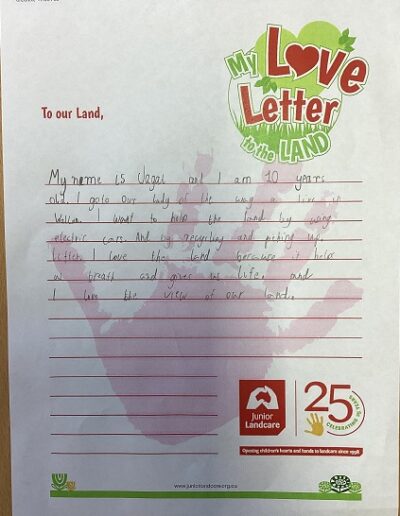 My Love
Letter
to the LAND
To our Land,
My name is and I am 10 years
old. I go to Our lady of the way
I want to help the land by using
electric cars. And by recycling and picking up
litter. I love the land because it helps
us breath and gives us life. and
I love the view of our land.
Junior
Landcare
25
YEARS
CELEBRATING
Opening children's hearts and hands to landcare since 1998
www.juniorlandcare.org.au